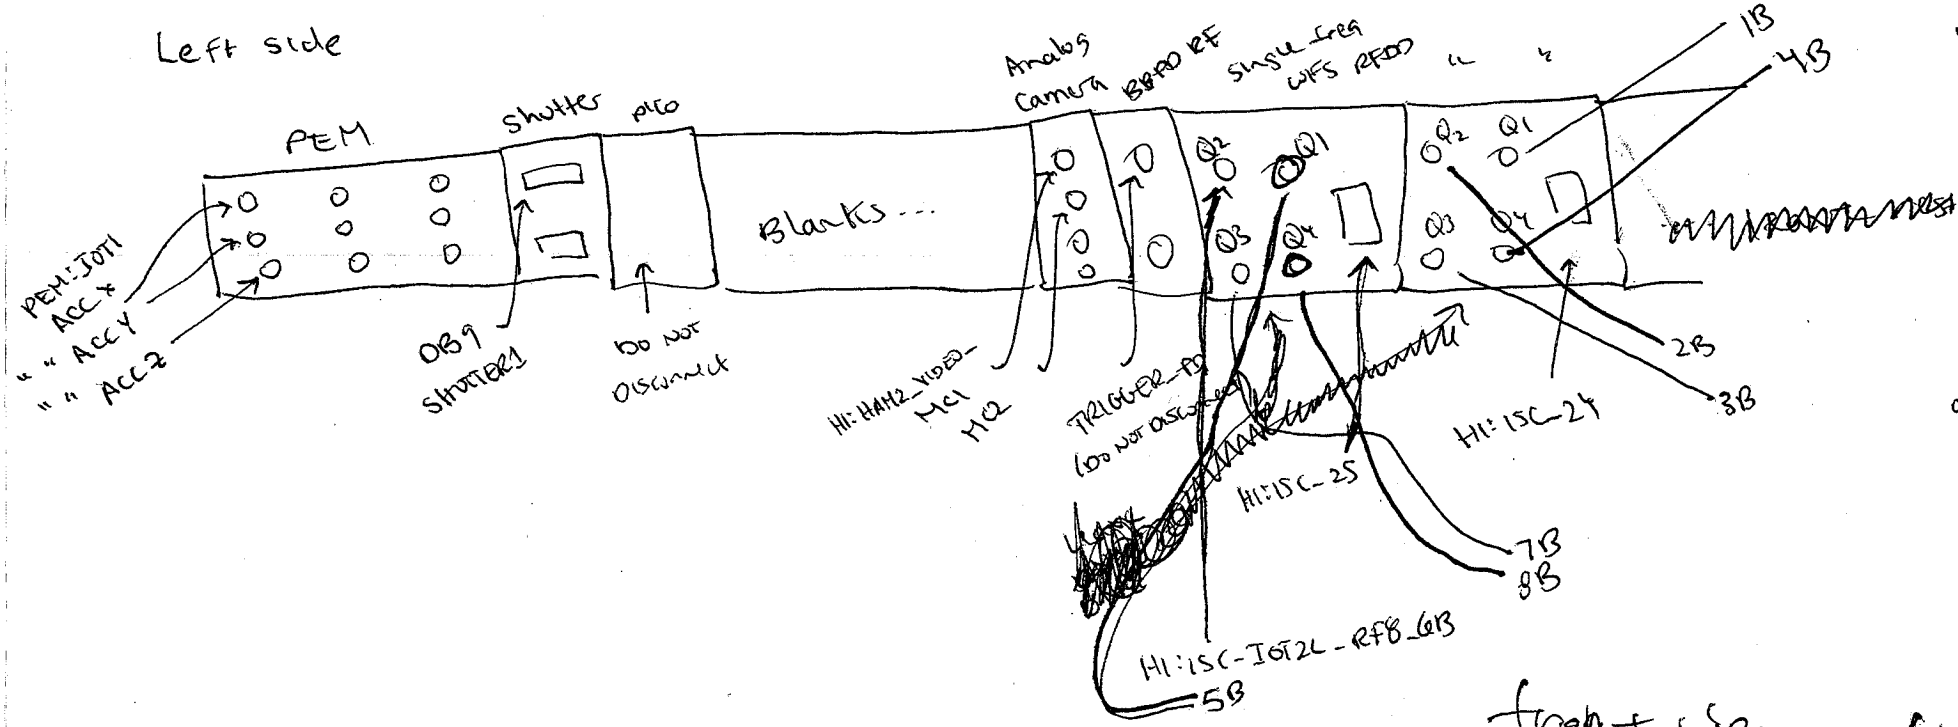 Left side
PEM
Shutter
pico
Analog
Camera
BBPD RF
Single freq
WFS RFPD
" "
1B
4B
Q2
Q1
Q2
Q1
Q3
Q4
Q3
Q4
Blanks...
PEM:IOT1
ACC X
" " ACC Y
" " ACC Z
DB9
SHUTTER1
DO NOT
DISCONNECT
H1:HAM2_VIDEO_
MC1
MC2
TRIGGER_PD
(DO NOT DISCONNECT
H1:ISC_25
H1:ISC_24
2B
3B
7B
8B
H1:ISC-IOT2L-RF8_6B
5B
front side